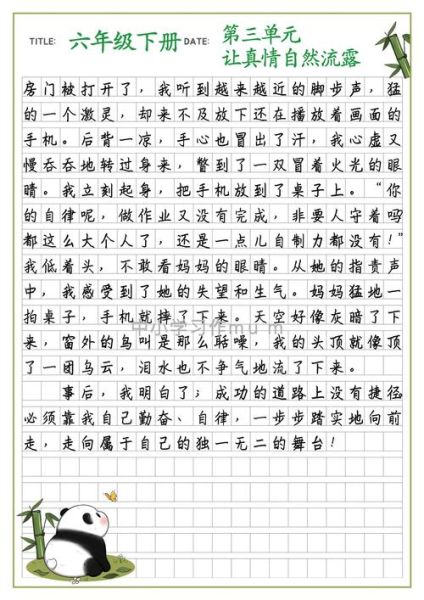 TITLE: 六年级下册 DATE: 第三单元
让真情自然流露
房门被打开了，我听到越来越近的脚步声，猛
的一个激灵，却来不及放下还在播放着画面的
手机。后背一凉，手心也冒出了汗，我心虚又
慢吞吞地转过身来，瞥到了一双冒着火光的眼
睛。我立刻起身，把手机放到了桌子上。“你
的自律呢，做作业又没有完成，非要人守着吗
都这么大个人了，还是一点儿自制力都没有！”
我低着头，不敢看妈妈的眼睛。从她的指责声
中，我感受到了她的失望和生气。妈妈猛地一
拍桌子，手机就摔了下来。天空好像灰暗了下
来，窗外的鸟叫是那么聒噪，我的头顶就像顶
了一团乌云，泪水也不争气地流了下来。
事后，我明白了；成功的道路上没有捷径
必须靠我自己勤奋、自律，一步步踏实地向前
走，走向属于自己的独一无二的舞台！
中小学习作mum